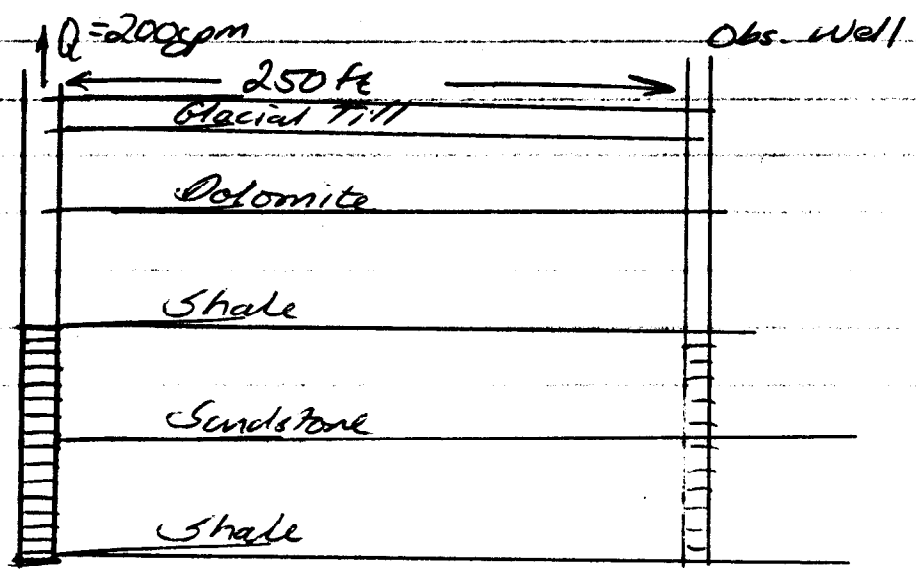 Q=200gpm
Obs. Well
250 ft
Glacial Till
Dolomite
Shale
Sandstone
Shale